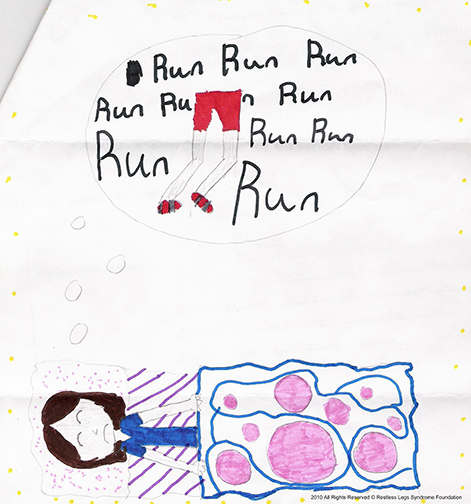 Run Run Run
Run Run Run
Run Run
Run
Run
2010 All Rights Reserved © Restless Legs Syndrome Foundation